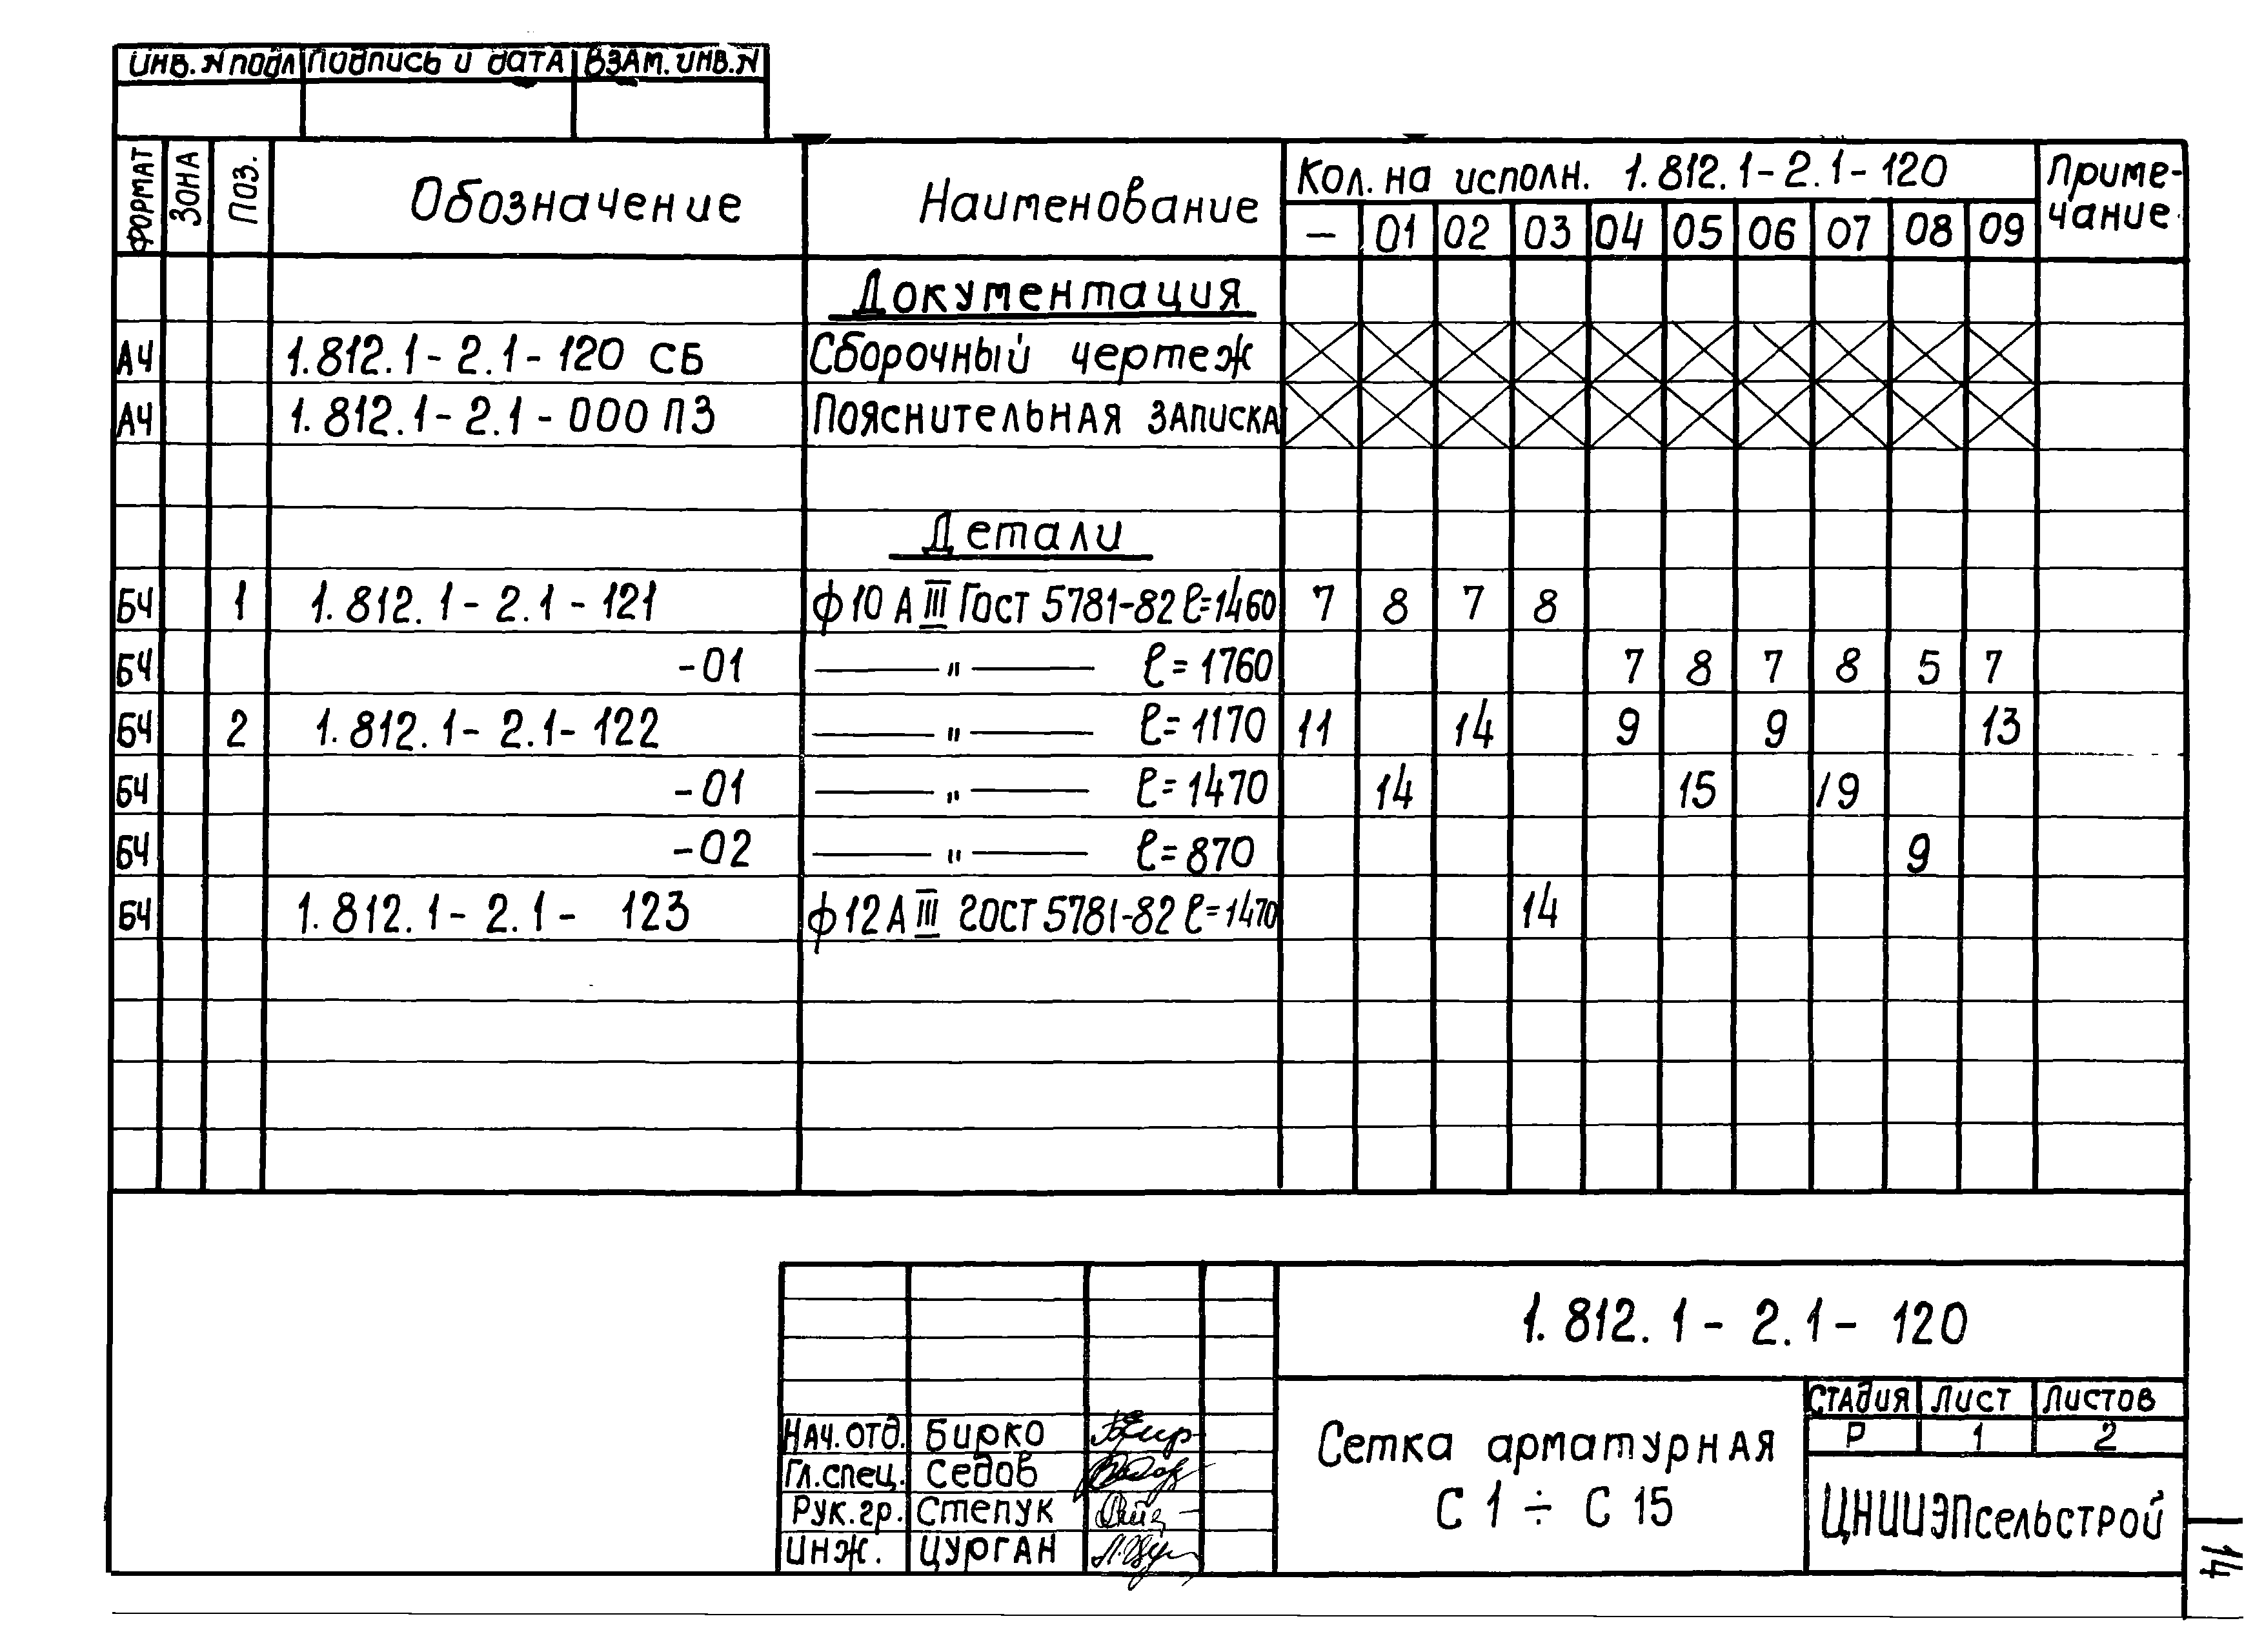 Инв. № подл Подпись и дата Взам. инв. №
Формат Зона Поз. Обозначение Наименование Кол. на исполн. 1.812.1-2.1-120 Приме-
чание
— 01 02 03 04 05 06 07 08 09
Документация
А4 1.812.1-2.1-120 СБ Сборочный чертеж
А4 1.812.1-2.1-000 ПЗ Пояснительная записка
Детали
БЧ 1 1.812.1-2.1-121 ф10 А III Гост 5781-82 ℓ=1460 7 8 7 8
БЧ -01 — " — ℓ=1760 7 8 7 8 5 7
БЧ 2 1.812.1-2.1-122 — " — ℓ=1170 11 14 9 9 13
БЧ -01 — " — ℓ=1470 14 15 19
БЧ -02 — " — ℓ=870 9
БЧ 1.812.1-2.1-123 ф12 А III гост 5781-82 ℓ=1470 14
1.812.1-2.1-120
Стадия Лист Листов
Р 1 2
Сетка арматурная
С 1 ÷ С 15
ЦНИИЭПсельстрой
Нач. отд. Бирко
Гл. спец. Седов
Рук. гр. Степук
Инж. Цурган
14